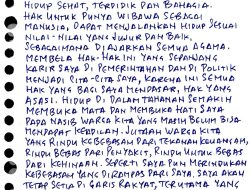 HIDUP SEHAT, TERDIDIK DAN BAHAGIA.
HAK UNTUK PUNYA WIBAWA SEBAGAI
MANUSIA, DAPAT MENJALANKAN HIDUP SESUAI
NILAI-NILAI YANG JUJUR DAN BAIK,
SEBAGAIMANA DIAJARKAN SEMUA AGAMA.
MEMBELA HAK-HAK INI YANG SEPANJANG
KARIR SAYA DI PEMERINTAHAN DAN DI POLITIK
MENJADI CITA-CITA SAYA, KARENA INI SEMUA
HAK YANG BAGI SAYA MENDASAR, HAK YANG
ASASI. HIDUP DI DALAM TAHANAN SEMAKIN
MEMBUKA MATA DAN MEMBUKA HATI SAYA
PADA NASIB WARGA KITA YANG MASIH BELUM BISA
MENDAPAT KEADILAN. JUTAAN WARGA KITA
YANG RINDU KEBEBASAN DARI TEKANAN KEUANGAN,
RINDU BEBAS DARI PENYAKIT, RINDU UNTUK BEBAS
DARI KEHINAAN. SEPERTI SAYA PUN MERINDUKAN
KEBEBASAN YANG DIRAMPAS DARI SAYA, SAYA AKAN
TETAP SETIA DI GARIS RAKYAT, TERUTAMA YANG